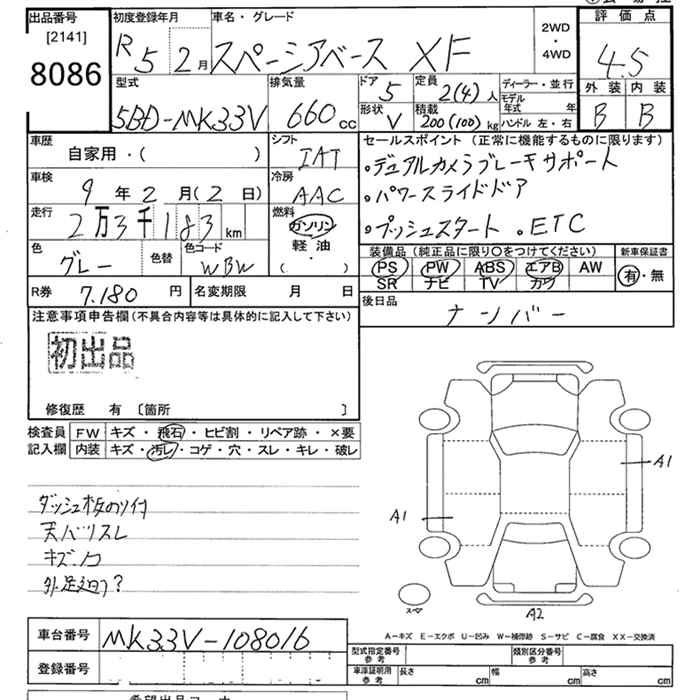 出品番号
[2141]
8086
初度登録年月
R5 2月
車名・グレード
スペーシアベース XF
2WD
・
4WD
評価点
4.5
外装 内装
B B
型式
5BD-MK33V
排気量
660 cc
ドア 5
形状 V
定員 2(4) 人
積載 200(100) kg
ディーラー・並行
モデル年式 年
ハンドル 左・右
車歴
自家用・( )
シフト
IAT
車検
9年2月(2日)
冷房
AAC
走行
2万3千183 km
燃料
ガソリン
軽油
( ・ )
色
グレー
色替
色コード
WBW
R券 7.180 円
名変期限 月 日
セールスポイント(正常に機能するものに限ります)
・デュアルカメラブレーキサポート
・パワースライドドア
・プッシュスタート ・ETC
装備品(純正品に限り○をつけてください)
PS PW ABS エアB AW
SR ナビ TV カワ
新車保証書
有・無
後日品
ナンバー
注意事項申告欄(不具合内容等は具体的に記入して下さい)
初出品
修復歴 有 〔箇所 〕
検査員
記入欄
FW キズ・飛石・ヒビ割・リペア跡・×要
内装 キズ・汚レ・コゲ・穴・スレ・キレ・破レ
ダッシュ板のり付
天バリスレ
キズ
A1
A1
A2
スペア
A-キズ E-エクボ U-凹み W-補修跡 S-サビ C-腐食 XX-交換済
車台番号
MK33V-108016
登録番号
型式指定番号
参考
類別区分番号
参考
車庫証明用
参考
長さ cm 幅 cm 高さ cm